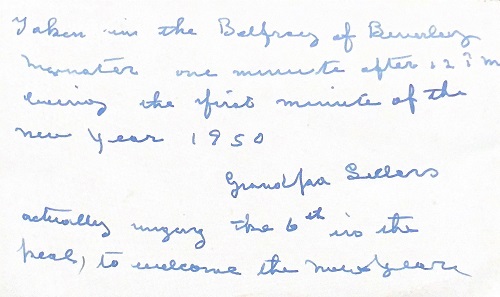 Taken in the Belfray of Beverley
Minster one minute after 12
being the first minute of the
new year 1950
Grandpa Sellers
actually ringing the 6th in the
peal, to welcome the New Year